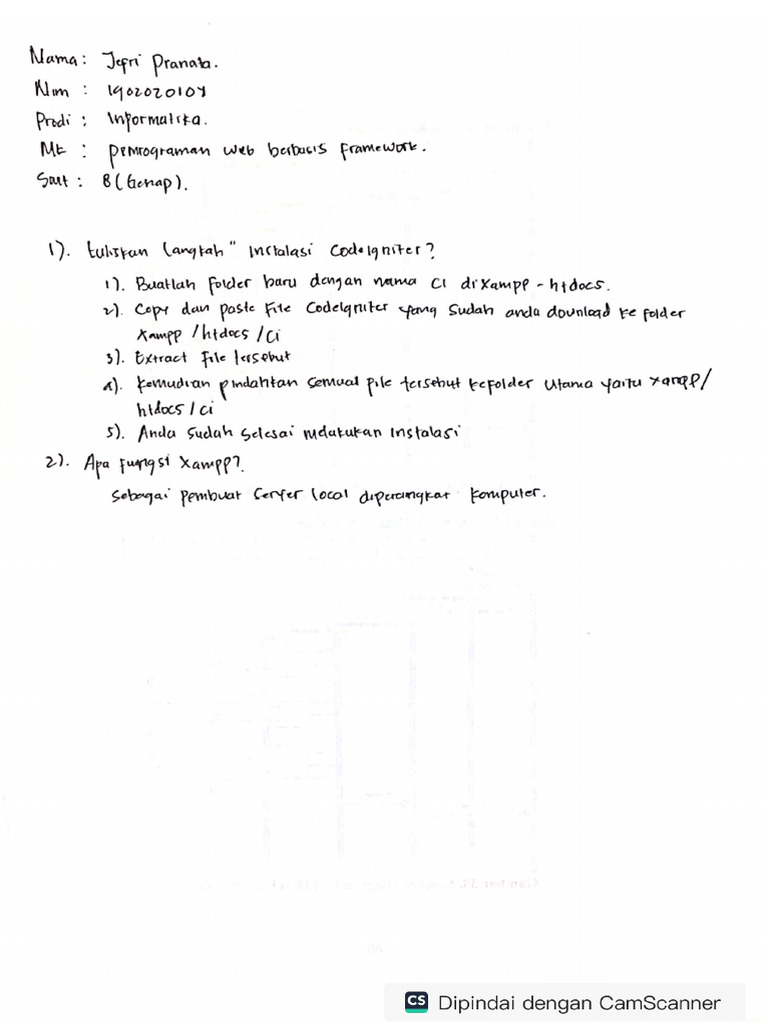 Nama : Jefri Pranata.
Nim : 1902020104
Prodi : Informatika.
Mk : pemrograman web berbasis framework.
Smt : 8 (Genap).
1). tuliskan langkah" instalasi CodeIgniter?
1). Buatlah folder baru dengan nama CI di xampp - htdocs.
2). Copy dan paste file CodeIgniter yang sudah anda download ke folder
xampp / htdocs / ci
3). Extract file tersebut
4). Kemudian pindahkan semual file tersebut kefolder utama yaitu xampp /
htdocs / ci
5). Anda sudah selesai melakukan instalasi
2). Apa fungsi xampp?
sebagai pembuat server local diperangkat komputer.
CS Dipindai dengan CamScanner